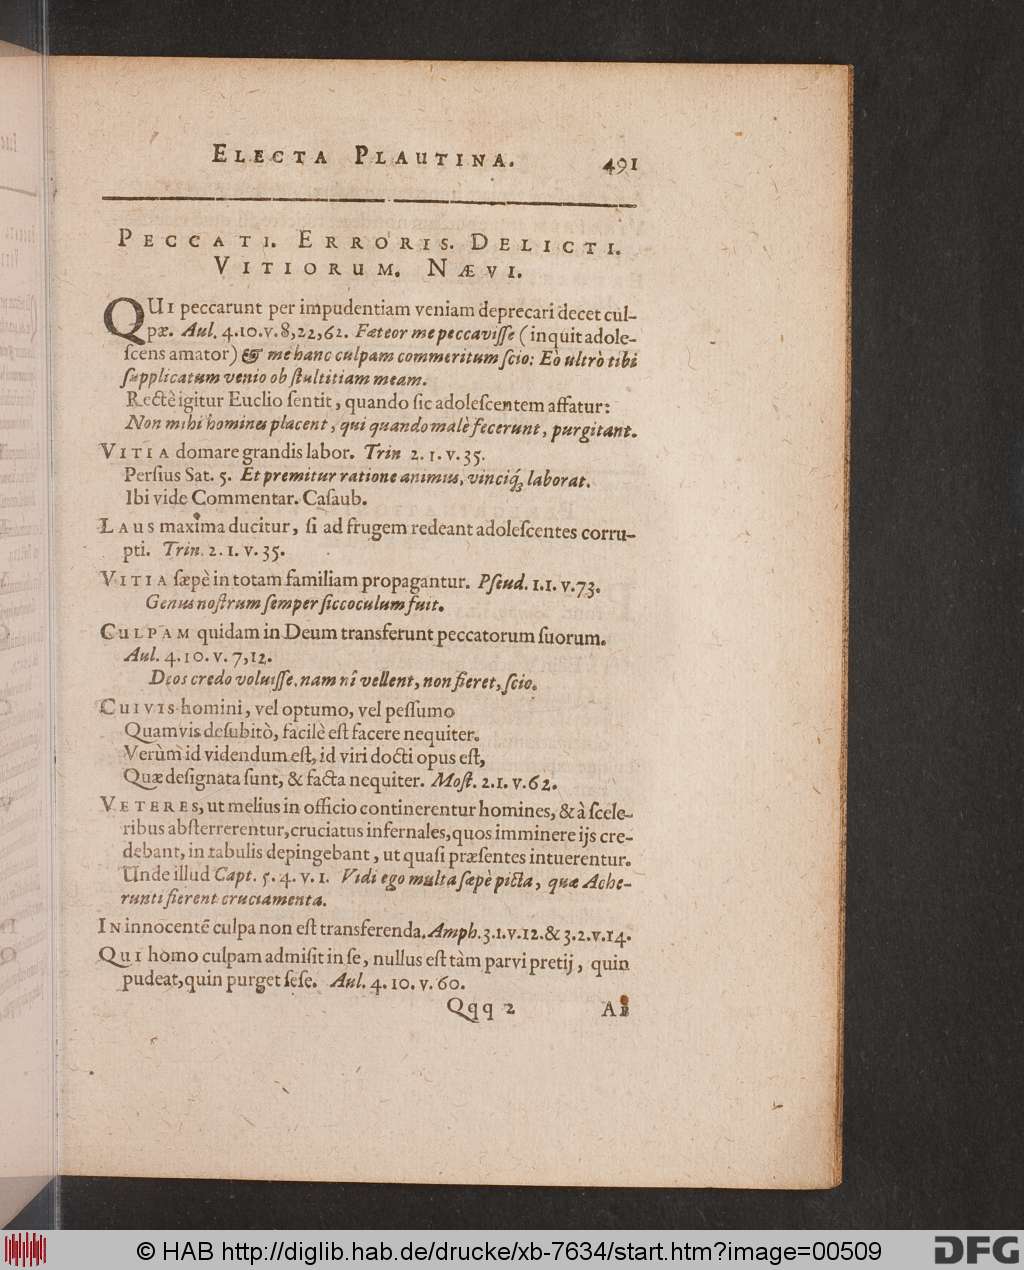 ELECTA PLAUTINA. 491
PECCATI. ERRORIS. DELICTI.
VITIORUM. NÆVI.
QUI peccarunt per impudentiam veniam deprecari decet cul-
pæ. Aul. 4.10.v.8,22,62. Fateor me peccavisse (inquit adole-
scens amator) & me hanc culpam commeritum scio: Eò ultrò tibi
supplicatum venio ob stultitiam meam.
Rectè igitur Euclio sentit, quando sic adolescentem affatur:
Non mihi homines placent, qui quando malè fecerunt, purgitant.
VITIA domare grandis labor. Trin 2. 1. v. 35.
Persius Sat. 5. Et premitur ratione animus, vinciq́; laborat.
Ibi vide Commentar. Casaub.
LAUS maxima ducitur, si ad frugem redeant adolescentes corru-
pti. Trin. 2. 1. v. 35.
VITIA sæpè in totam familiam propagantur. Pseud. 1.1. v.73.
Genus nostrum semper siccoculum fuit.
CULPAM quidam in Deum transferunt peccatorum suorum.
Aul. 4. 10. v. 7,12.
Deos credo voluisse, nam nî vellent, non fieret, scio.
CUIVIS homini, vel optumo, vel pessumo
Quamvis desubitò, facilè est facere nequiter.
Verùm id videndum est, id viri docti opus est,
Quæ designata sunt, & facta nequiter. Most. 2.1. v.62.
VETERES, ut melius in officio continerentur homines, & à scele-
ribus absterrerentur, cruciatus infernales, quos imminere ijs cre-
debant, in tabulis depingebant, ut quasi præsentes intuerentur.
Unde illud Capt. 5. 4. v. 1. Vidi ego multa sæpè picta, quæ Ache-
runti fierent cruciamenta.
IN innocentē culpa non est transferenda. Amph. 3.1.v.12.& 3.2.v.14.
QUI homo culpam admisit in se, nullus est tàm parvi pretij, quin
pudeat, quin purget sese. Aul. 4. 10. v. 60.
Qqq 2
© HAB http://diglib.hab.de/drucke/xb-7634/start.htm?image=00509
DFG